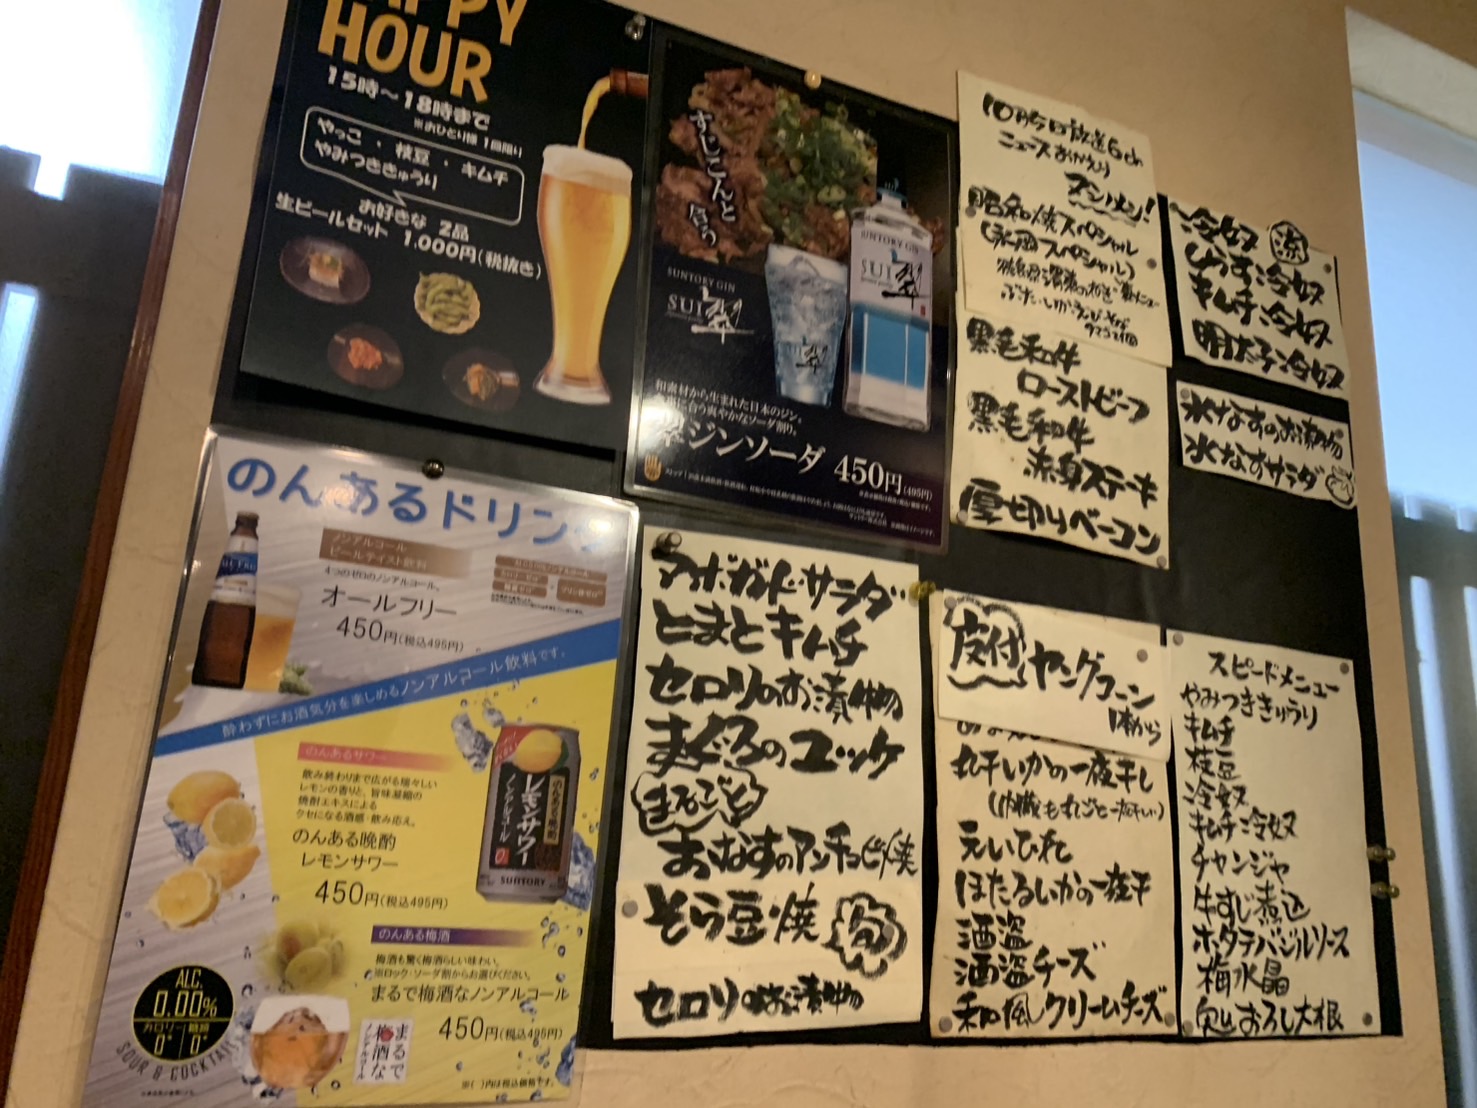 HAPPY
HOUR
15時～18時まで
※おひとり様 1回限り
やっこ ・ 枝豆 ・ キムチ
やみつききゅうり
お好きな 2品
生ビールセット 1,000円(税抜き)
すじこんと
合う
SUNTORY GIN
SUI 翠
SUNTORY GIN
SUI 翠
翠
和素材から生まれた日本のジン。
爽やかなソーダ割り。
翠ジンソーダ 450円(495円)
のんあるドリンク
ノンアルコール
ビールテイスト飲料
4つのゼロのノンアルコール。
オールフリー
450円(税込495円)
酔わずにお酒気分を楽しめるノンアルコール飲料です。
のんあるサワー
飲み終わりまで広がる瑞々しい
レモンの香りと、旨味凝縮の
焼酎エキスによる
クセになる酒感・飲み応え。
のんある晩酌
レモンサワー
450円(税込495円)
のんある晩酌
レモンサワー
ノンアルコール
SUNTORY
のんある梅酒
梅酒も驚く梅酒らしい味わい。
※ロック・ソーダ割からお選びください。
まるで梅酒なノンアルコール
450円(税込495円)
まるで
梅酒な
ノンアルコール
ALC.
0.00%
カロリー 糖類
0 0
SOUR & COCKTAIL
※( )内は税込価格です。
10月5日放送6ch
ニュースおかえり
昭和焼スペシャル
黒毛和牛
ローストビーフ
黒毛和牛
赤身ステーキ
厚切りベーコン
冷奴
キムチ冷奴
明太子冷奴
水なすのお漬物
水なすサラダ
アボガドサラダ
とまとキムチ
セロリのお漬物
まぐろのユッケ
まるごと
おなすのアンチョビ焼
そら豆焼
旬
セロリのお漬物
皮付ヤングコーン
1本から
丸干いかの一夜干し
えいひれ
ほたるいかの一夜干
酒盗
酒盗チーズ
和風クリームチーズ
スピードメニュー
やみつききゅうり
キムチ
枝豆
冷奴
キムチ冷奴
チャンジャ
牛すじ煮込
ホタテバジルソース
梅水晶
おろし大根